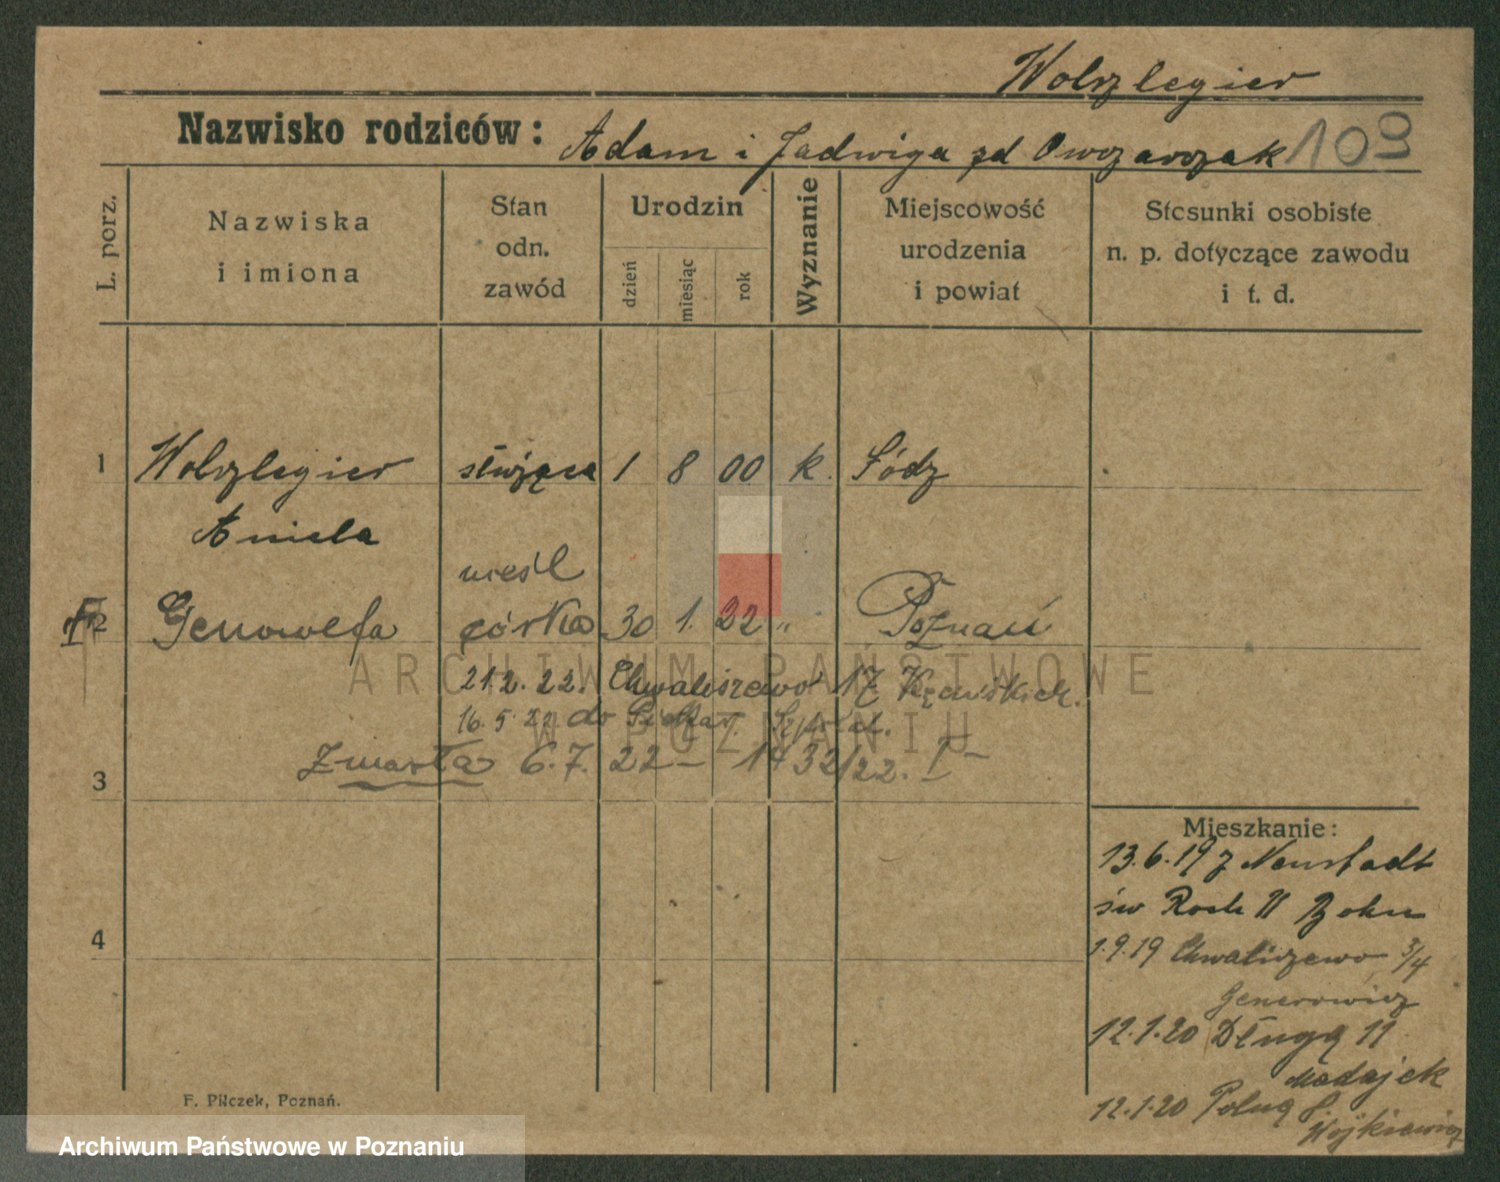 Wolszlegier
Nazwisko rodziców: Adam i Jadwiga zd Owczarczak 109
L. porz.
Nazwiska
i imiona
Stan
odn.
zawód
Urodzin
dzień
miesiąc
rok
Wyznanie
Miejscowość
urodzenia
i powiat
Stosunki osobiste
n. p. dotyczące zawodu
i t. d.
1 Wolszlegier służąca 1 8 00 k. Łódz
Aniela
nieśl
2 Genowefa córka 30 1. 22 " Poznań
21.2.22. Chwaliszewo 17
16.5.22 do
3 Zmarła 6.7.22 – 1432/22. I –
Mieszkanie:
13.6.19 z Neustadt
św Roch 11
4 1.9.19 Chwaliszewo 3/4
Generowicz
12.1.20 Długą 11
Madajek
12.1.20 Polną
Wojkiewicz
F. Pilczek, Poznań.
ARCHIWUM PAŃSTWOWE
W POZNANIU
Archiwum Państwowe w Poznaniu